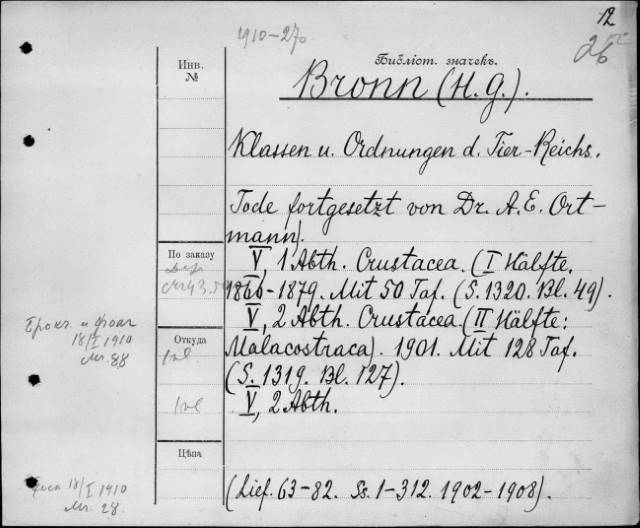 12
26
1910-27
Библіот. значекъ.
Инв.
№
Bronn (H. G.).
Klassen u. Ordnungen d. Tier-Reichs.
Tode fortgesetzt von Dr. A. E. Ort-
mann).
По заказу
V, 1 Abth. Crustacea. (I Hälfte.
1866-1879. Mit 50 Taf. (S. 1320. Bl. 49).
V, 2 Abth. Crustacea (II Hälfte:
Откуда
Malacostraca). 1901. Mit 128 Taf.
(S. 1319. Bl. 127).
V, 2 Abth.
18/I 1910
Цѣна
(Lief. 63-82. Ss. 1-312. 1902-1908).
18/I 1910